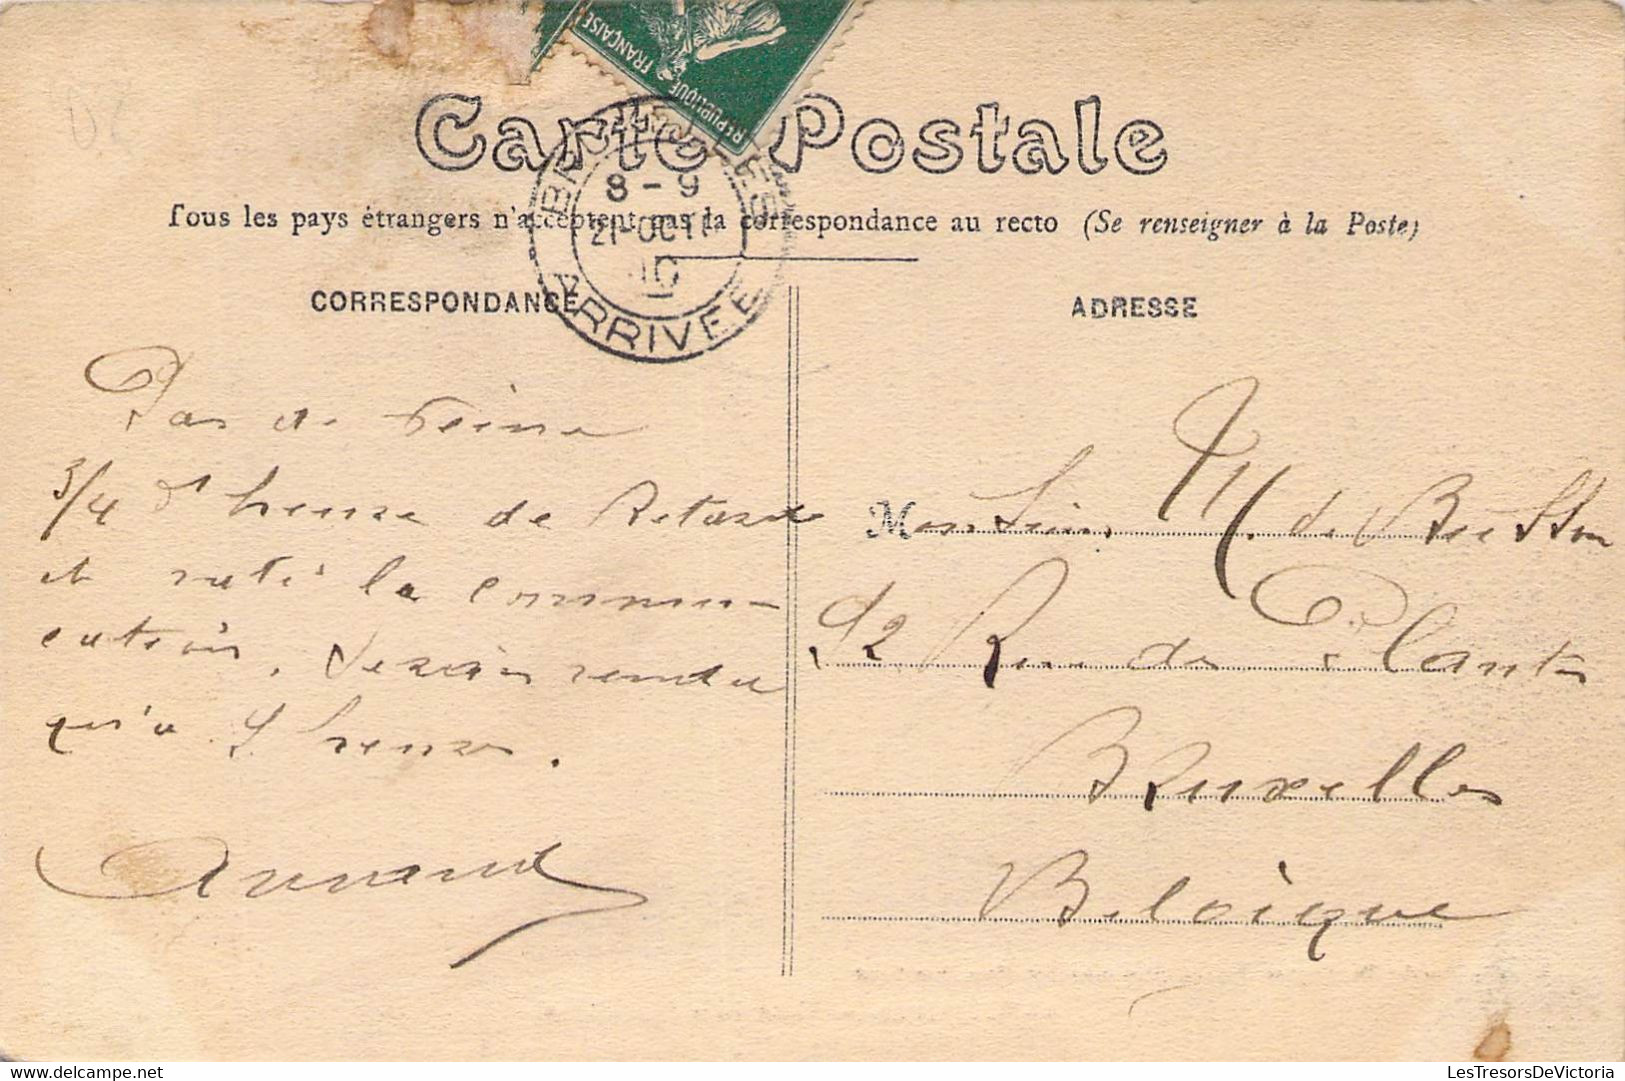 RÉPUBLIQUE FRANÇAISE
Carte Postale
Tous les pays étrangers n'acceptent pas la correspondance au recto (Se renseigner à la Poste)
BRUXELLES
8-9
21 OCT
10
ARRIVEE
CORRESPONDANCE
Pas de veine
3/4 d'heure de Retard
et raté la commu-
cation. Serais rendu
qu'a 9 heures.
Armand
ADRESSE
Monsieur M. de
52 Rue des Plantes
Bruxelles
Belgique
LesTresorsDeVictoria